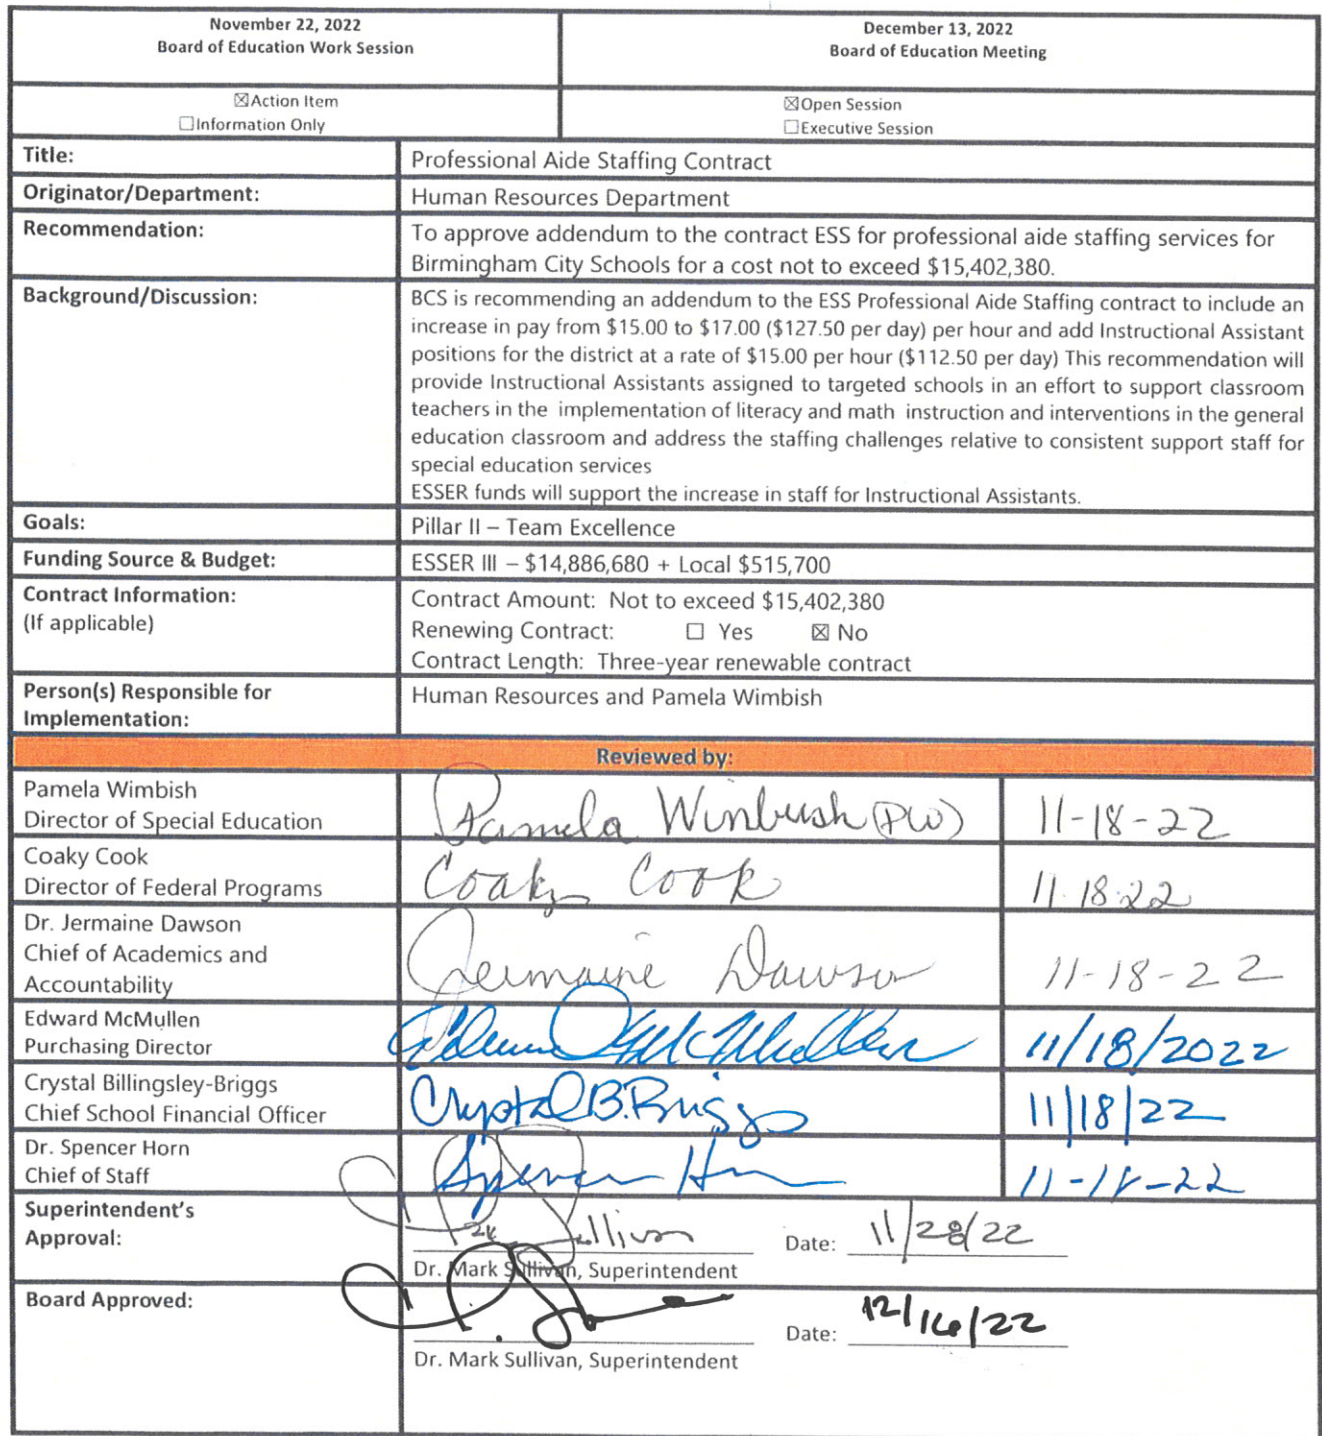 November 22, 2022
Board of Education Work Session
December 13, 2022
Board of Education Meeting
☒Action Item
☐Information Only
☒Open Session
☐Executive Session
Title:
Professional Aide Staffing Contract
Originator/Department:
Human Resources Department
Recommendation:
To approve addendum to the contract ESS for professional aide staffing services for
Birmingham City Schools for a cost not to exceed $15,402,380.
Background/Discussion:
BCS is recommending an addendum to the ESS Professional Aide Staffing contract to include an
increase in pay from $15.00 to $17.00 ($127.50 per day) per hour and add Instructional Assistant
positions for the district at a rate of $15.00 per hour ($112.50 per day) This recommendation will
provide Instructional Assistants assigned to targeted schools in an effort to support classroom
teachers in the implementation of literacy and math instruction and interventions in the general
education classroom and address the staffing challenges relative to consistent support staff for
special education services
ESSER funds will support the increase in staff for Instructional Assistants.
Goals:
Pillar II – Team Excellence
Funding Source & Budget:
ESSER III – $14,886,680 + Local $515,700
Contract Information:
(If applicable)
Contract Amount: Not to exceed $15,402,380
Renewing Contract: ☐ Yes ☒ No
Contract Length: Three-year renewable contract
Person(s) Responsible for
Implementation:
Human Resources and Pamela Wimbish
Reviewed by:
Pamela Wimbish
Director of Special Education
Pamela Winbush (PW)
11-18-22
Coaky Cook
Director of Federal Programs
Coaky Cook
11.18.22
Dr. Jermaine Dawson
Chief of Academics and
Accountability
Jermaine Dawson
11-18-22
Edward McMullen
Purchasing Director
McMullen
11/18/2022
Crystal Billingsley-Briggs
Chief School Financial Officer
Crystal B. Briggs
11/18/22
Dr. Spencer Horn
Chief of Staff
Spencer Horn
11-18-22
Superintendent's
Approval:
Sullivan
Date: 11/28/22
Dr. Mark Sullivan, Superintendent
Board Approved:
Date: 12/16/22
Dr. Mark Sullivan, Superintendent